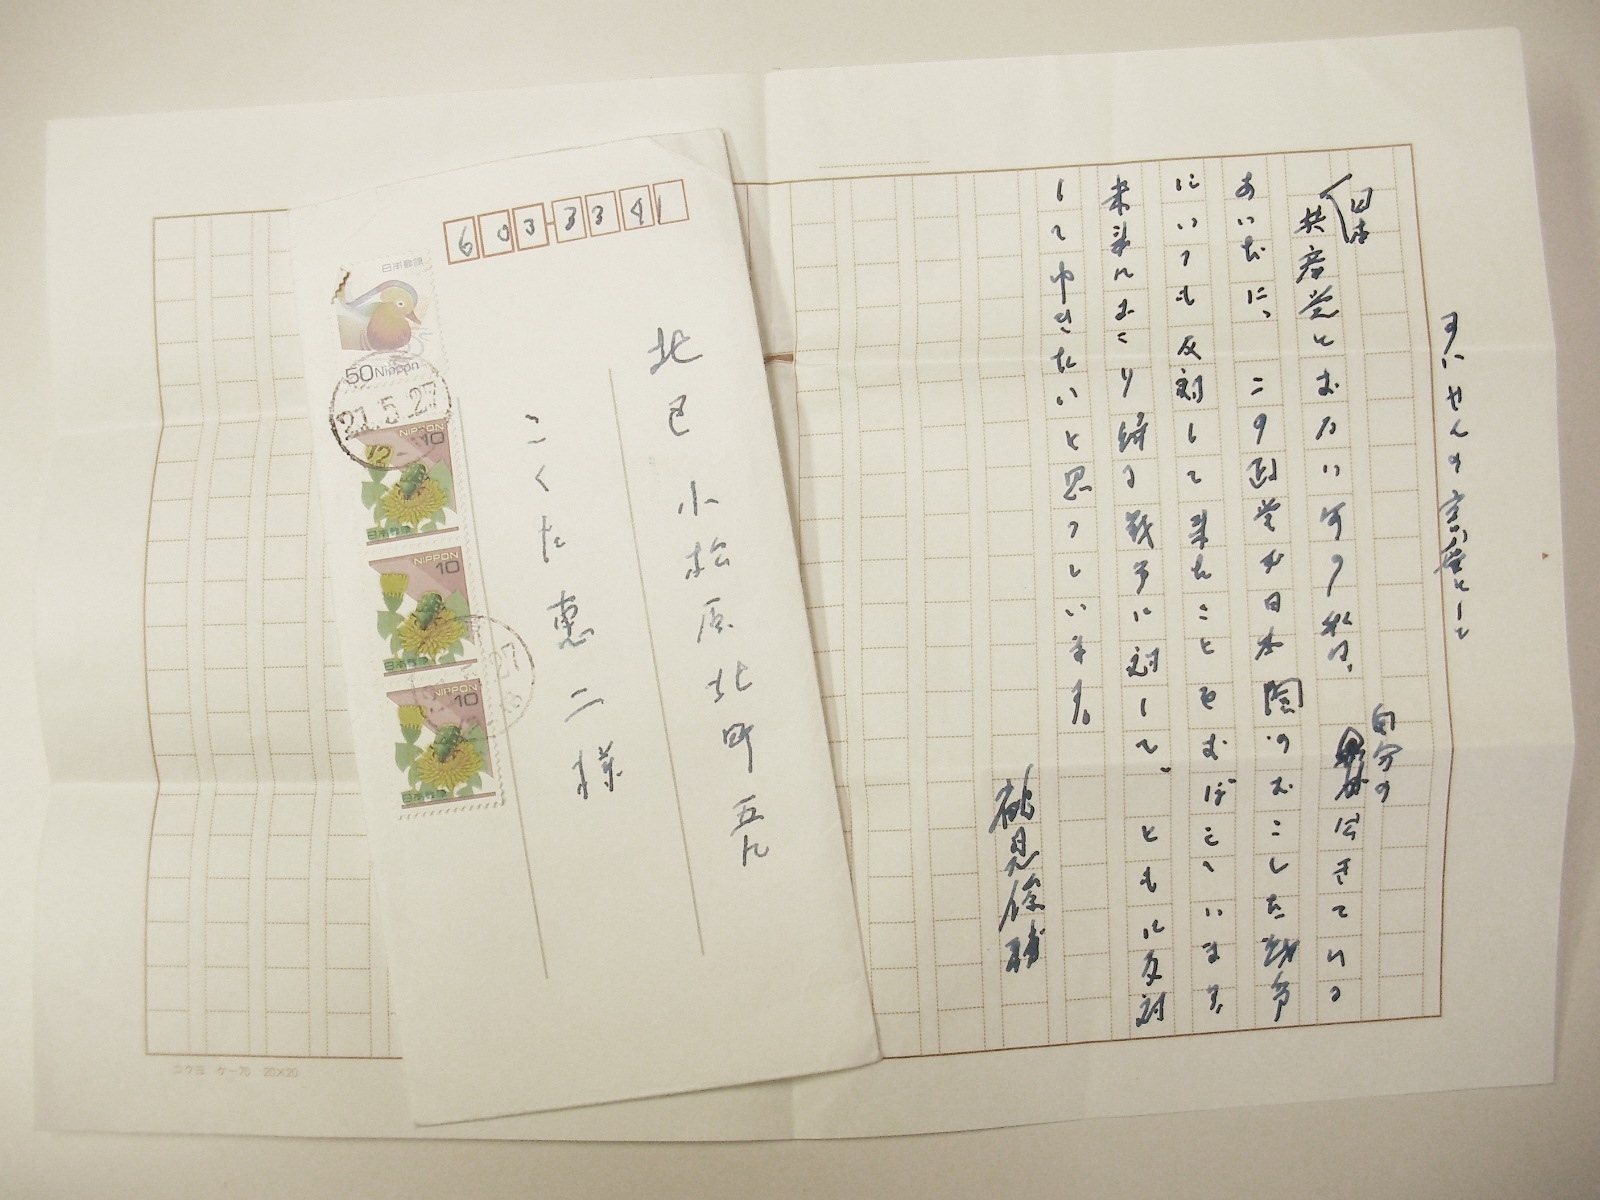 すいせんの言葉として
日本
共産党とおない年の私は、
自分の
生きている
あいだに、この政党が日本国のおこした戦争
にいつも反対して来たことをおぼえています。
未来におこり得る戦争に対して、ともに反対
してゆきたいと思っています。
鶴見俊輔
603-3341
北区小松原北町五八
こくた恵二様
日本郵便
50 Nippon
21.5.27
NIPPON 10
日本郵便
NIPPON 10
日本郵便
NIPPON 10
日本郵便
コクヨ ケー70 20×20